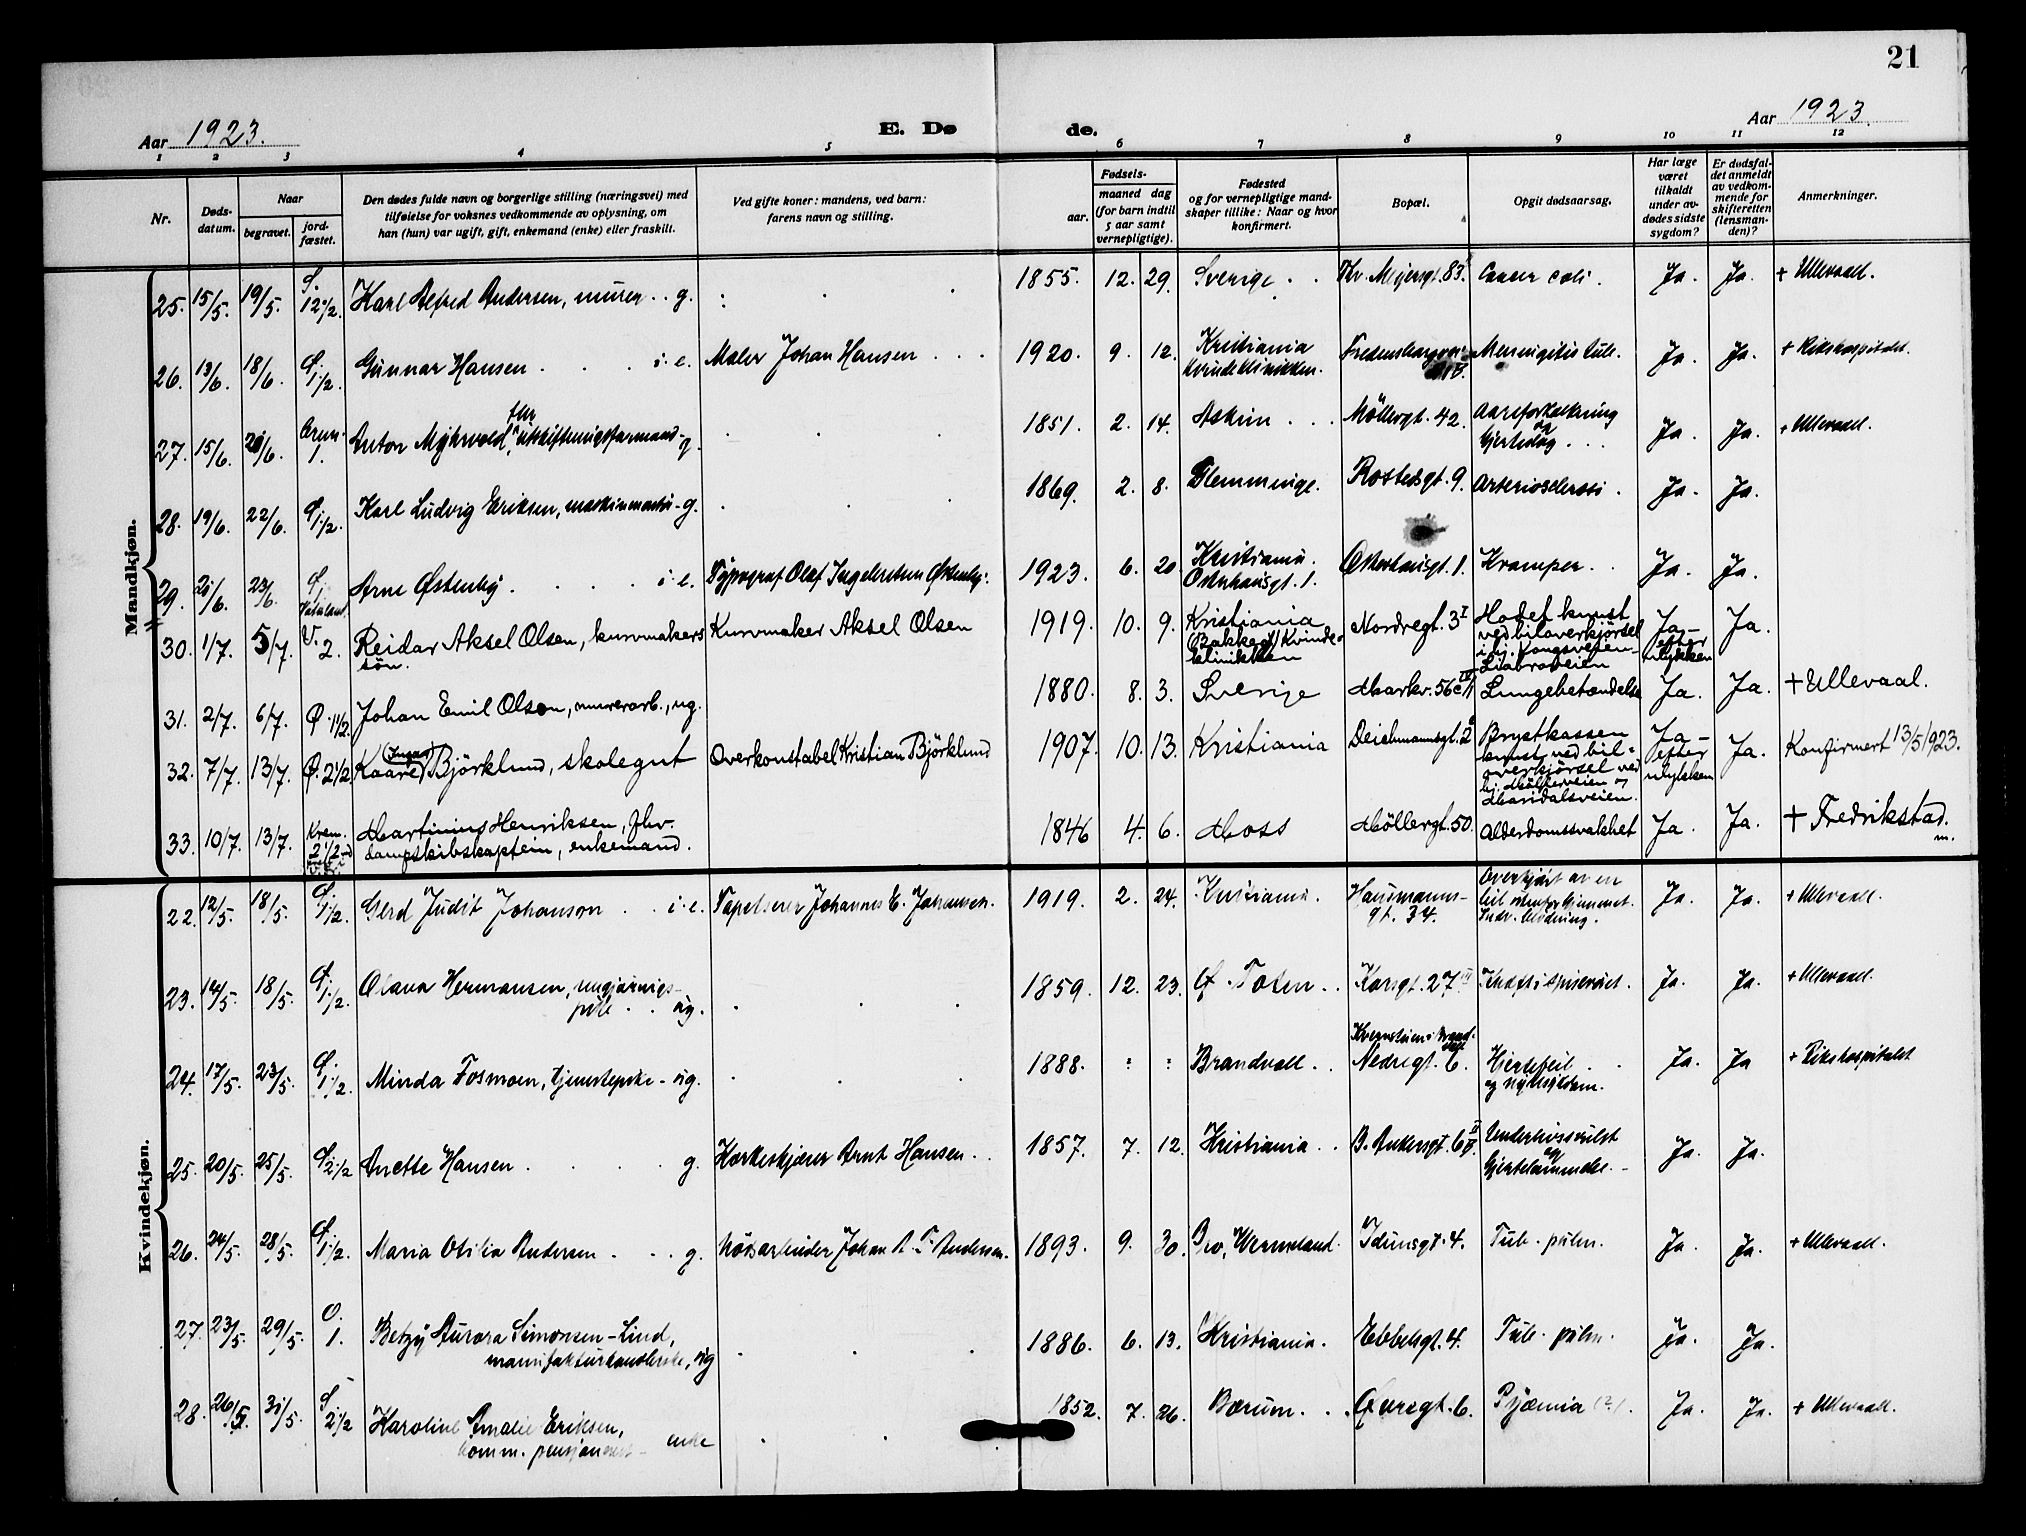 21
Aar 1923.
E. Dø
de.
Aar 1923.
1 2 3 4 5 6 7 8 9 10 11 12
Nr.
Døds-
datum.
Naar
begravet.
jord-
fæstet.
Den dødes fulde navn og borgerlige stilling (næringsvei) med
tilføielse for voksnes vedkommende av oplysning, om
han (hun) var ugift, gift, enkemand (enke) eller fraskilt.
Ved gifte koner: mandens, ved barn:
farens navn og stilling.
Fødsels-
aar.
maaned dag
(for barn indtil
5 aar samt
vernepligtige).
Fødested
og for vernepligtige mand-
skaper tillike: Naar og hvor
konfirmert.
Bopæl.
Opgit dødsaarsag.
Har læge
været
tilkaldt
under av-
dødes sidste
sygdom?
Er dødsfal-
det anmeldt
av vedkom-
mende for
skifteretten
(lensman-
den)?
Anmerkninger.
Mandkjøn.
25. 15/5. 19/5. S. 12 1/2. Karl Alfred Andersen, murer . . g. 1855. 12. 29. Sverige . . Thv. Meyersgt. 83. Cancer coli. Ja. Ja. + Ullevaal.
26. 13/6. 18/6. 1 1/2. Gunnar Hansen . . . i. e. Maler Johan Hansen . . . 1920. 9. 12. Kristiania Kvindeklinikken. Meningitis tub. Ja. Ja. + Rikshospitalet.
27. 15/6. 20/6. 1. Anton Myhrvold, g. 1851. 2. 14. Askim . . . Møllergt. 42. Aareforkalkning og Ja. Ja. + Ullevaal.
28. 19/6. 22/6. 1 1/2. Karl Ludvig Eriksen, maskinmester - g. 1869. 2. 8. Flemminge. Rostedsgt. 9. Arteriosclerosi. Ja. Ja.
29. 21/6. 23/6. Arne Østenby . . . i. e. Typograf Olaf Ingebretsen Østenby. 1923. 6. 20. Kristiania. Osterhausgt. 1. Osterhausgt. 1. Kramper . . Ja. Ja.
30. 1/7. 5/7. V. 2. Reidar Aksel Olsen, kurvmakers søn. Kurvmaker Aksel Olsen 1919. 10. 9. Kristiania (Bakkegt/Kvinde-klinikken Nordregt. 3 I Hodet knust ved biloverkjørsel i hj. Kongsveien - Ljabroveien Ja - efter ulykken Ja.
31. 2/7. 6/7. Ø. 1 1/2. Johan Emil Olson, murerarb., ug. 1880. 8. 3. Sverige Markv. 56c Lungebetændelse Ja. Ja. + Ullevaal.
32. 7/7. 13/7. Ø. 2 1/2. Kaare Björklund, skolegut Overkonstabel Kristian Björklund 1907. 10. 13. Kristiania Deichmannsgt. 2 Brystkassen knust ved bil-overkjørsel ved hj. Møllerveien - Maridalsveien. Ja - efter ulykken Ja. Konfirmert 13/5 1923.
33. 10/7. 13/7. Krem. 2 1/2 Martinius Henriksen, fhv. dampskibskaptein, enkemand. 1846 4. 6. Moss Møllergt. 50. Alderdomssvakhet Ja. Ja. + Fredrikstad.
Kvindekjøn.
22. 12/5. 18/5. 1 1/2. Gerd Judit Johanson . . i. e. Tapetserer Johannes E. Johansen. 1919. 2. 24. Kristiania. Hausmanns-gt. 34. Overkjørt av en bil Indv. blødning. Ja. Ja. + Ullevaal.
23. 14/5. 18/5. 1 1/2. Olava Hermansen, rengjørings-pike . . ug. 1859. 12. 23. Ø. Toten . . Korsgt. 27 III Kræft i spiserøret. Ja. Ja. + Ullevaal.
24. 17/5. 23/5. 1 1/2. Minda Fosmoen, tjenestepike - ug. 1888. Brandvall . . Nedregt. 6. Hjertefeil og nyresygdom. Ja. Ja + Rikshospitalet
25. 20/5. 25/5. 2 1/2 Anette Hansen . . . g. Korkeskjærer Arnt Hansen . . 1857. 7. 12. Kristiania . . B. Ankersgt. 6 Underlivssvulst og Hjertelammelse. Ja. Ja.
26. 24/5. 28/5. 1 1/2. Maria Otilia Andersen . . . g. Løsarbeider Johan A. T. Andersen. 1893. 9. 30. Bro, Wermeland. Idunsgt. 4. Tub. pulm. Ja. Ja. + Ullevaal.
27. 23/5. 29/5. O. 1. Betzy Aurora Simonsen-Lind, manufakturhandlerske, ug 1886. 6. 13. Kristiania. Ebbelsgt. 4. Tub. pulm. Ja. Ja.
28. 26/5. 31/5. S. 2 1/2 Karoline Amalie Eriksen, komm. pensjonist - enke 1852. 7. 26. Bærum . . Pyæmia (?). Ja. Ja. + Ullevaal.